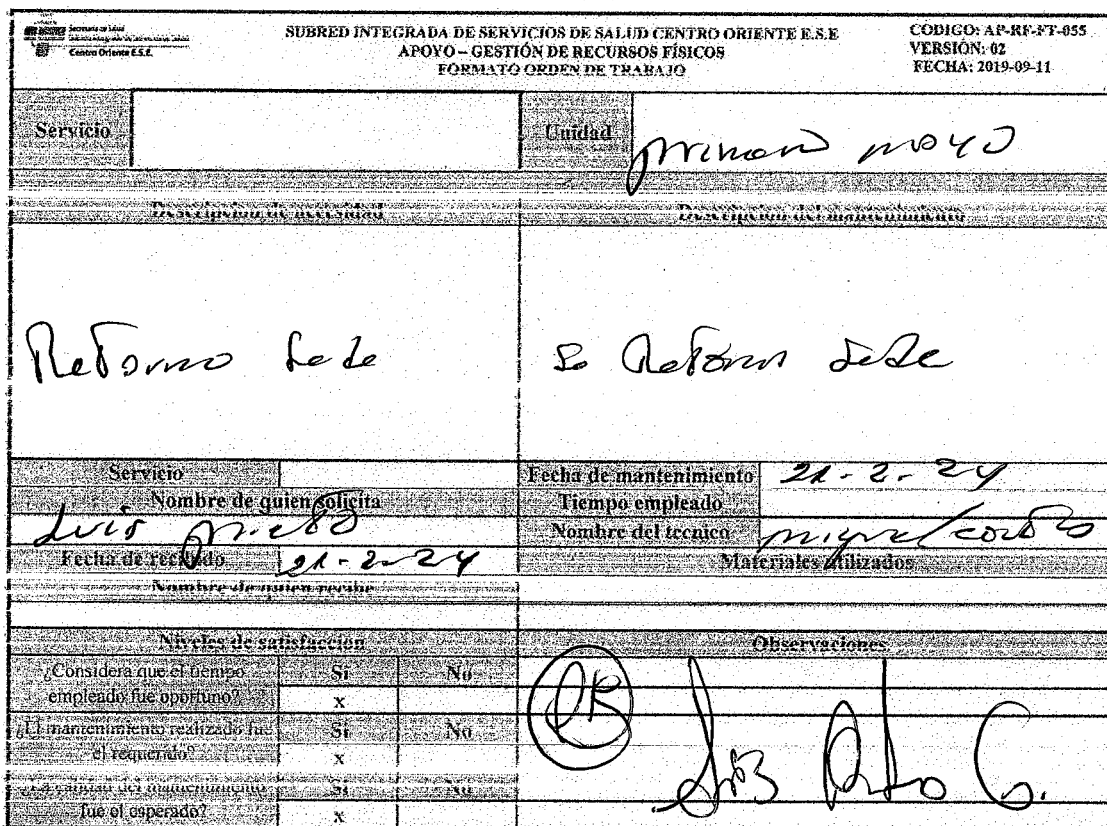 Secretaría de Salud
Centro Oriente E.S.E.
SUBRED INTEGRADA DE SERVICIOS DE SALUD CENTRO ORIENTE E.S.E
APOYO – GESTIÓN DE RECURSOS FÍSICOS
FORMATO ORDEN DE TRABAJO
CÓDIGO: AP-RF-FT-055
VERSIÓN: 02
FECHA: 2019-09-11
Servicio
Unidad primero mayo
Descripcion de necesidad
Descripcion del mantenimiento
Retorno sede
Se Retorno sede
Servicio
Nombre de quien solicita
Luis Prieto
Fecha de recibido 21-2-24
Nombre de quien recibe
Fecha de mantenimiento 21-2-24
Tiempo empleado
Nombre del tecnico miguel cortes
Materiales utilizados
Niveles de satisfaccion
Observaciones
¿Considera que el tiempo empleado fue oportuno?
Si No
x
¿El mantenimiento realizado fue el requerido?
Si No
x
¿La calidad del mantenimiento fue el esperado?
Si No
x